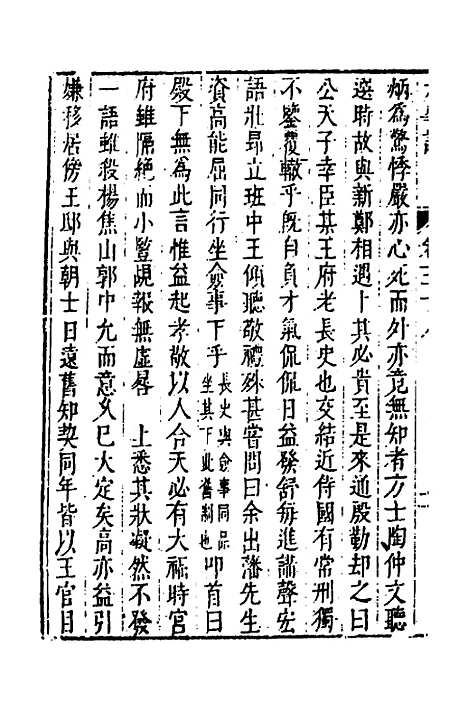 炳為驚悸嚴亦心死而外亦竟無知者方士陶仲文聽
選時故與新鄭相遇卜其必貴至是來通殷勤却之曰
公天子幸臣某王府老長史也交結近侍國有常刑獨
不鑒覆轍乎既自負才氣侃侃日益發舒每進講聲宏
語壯昻立班中王傾聽敬禮殊甚嘗問曰余出藩先生
資高能屈同行坐僉事下乎長史與僉事同品坐其下此舊制也叩首曰
殿下無為此言惟益起孝敬以人合天必有大福時宮
府雖隔絶而小豎覘報無虛晷 上悉其狀凝然不發
一語雖殺楊焦山郭中允而意乂巳大定矣高亦益引
嫌移居傍王邸與朝士日遠舊知契同年皆以王官目